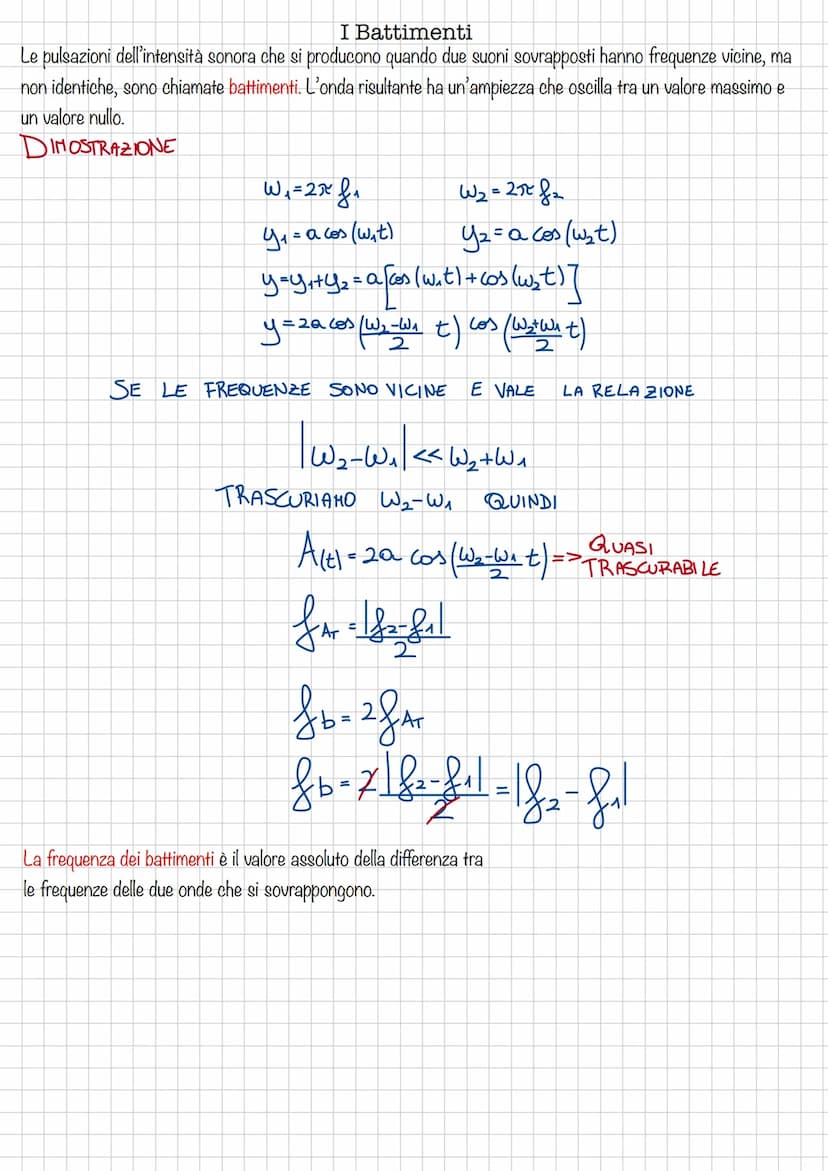 I Battimenti
Le pulsazioni dell'intensità sonora che si producono quando due suoni sovrapposti hanno frequenze vicine, ma
non identiche, sono chiamate battimenti. L'onda risultante ha un'ampiezza che oscilla tra un valore massimo e
un valore nullo.
DIMOSTRAZIONE
ω₁=2π f₁ ω₂=2π f₂
y₁=a cos(ω₁t) y₂=a cos(ω₂t)
y=y₁+y₂=a[cos(ω₁t)+cos(ω₂t)]
y=2a cos((ω₂-ω₁)/2 t) cos((ω₂+ω₁)/2 t)
SE LE FREQUENZE SONO VICINE E VALE LA RELAZIONE
|ω₂-ω₁|<<ω₂+ω₁
TRASCURIAMO ω₂-ω₁ QUINDI
A(t)=2a cos((ω₂-ω₁)/2 t)=> QUASI TRASCURABILE
f_AT=|f₂-f₁|/2
f_b=2f_AT
f_b=2|f₂-f₁|/2=|f₂-f₁|
La frequenza dei battimenti è il valore assoluto della differenza tra
le frequenze delle due onde che si sovrappongono.